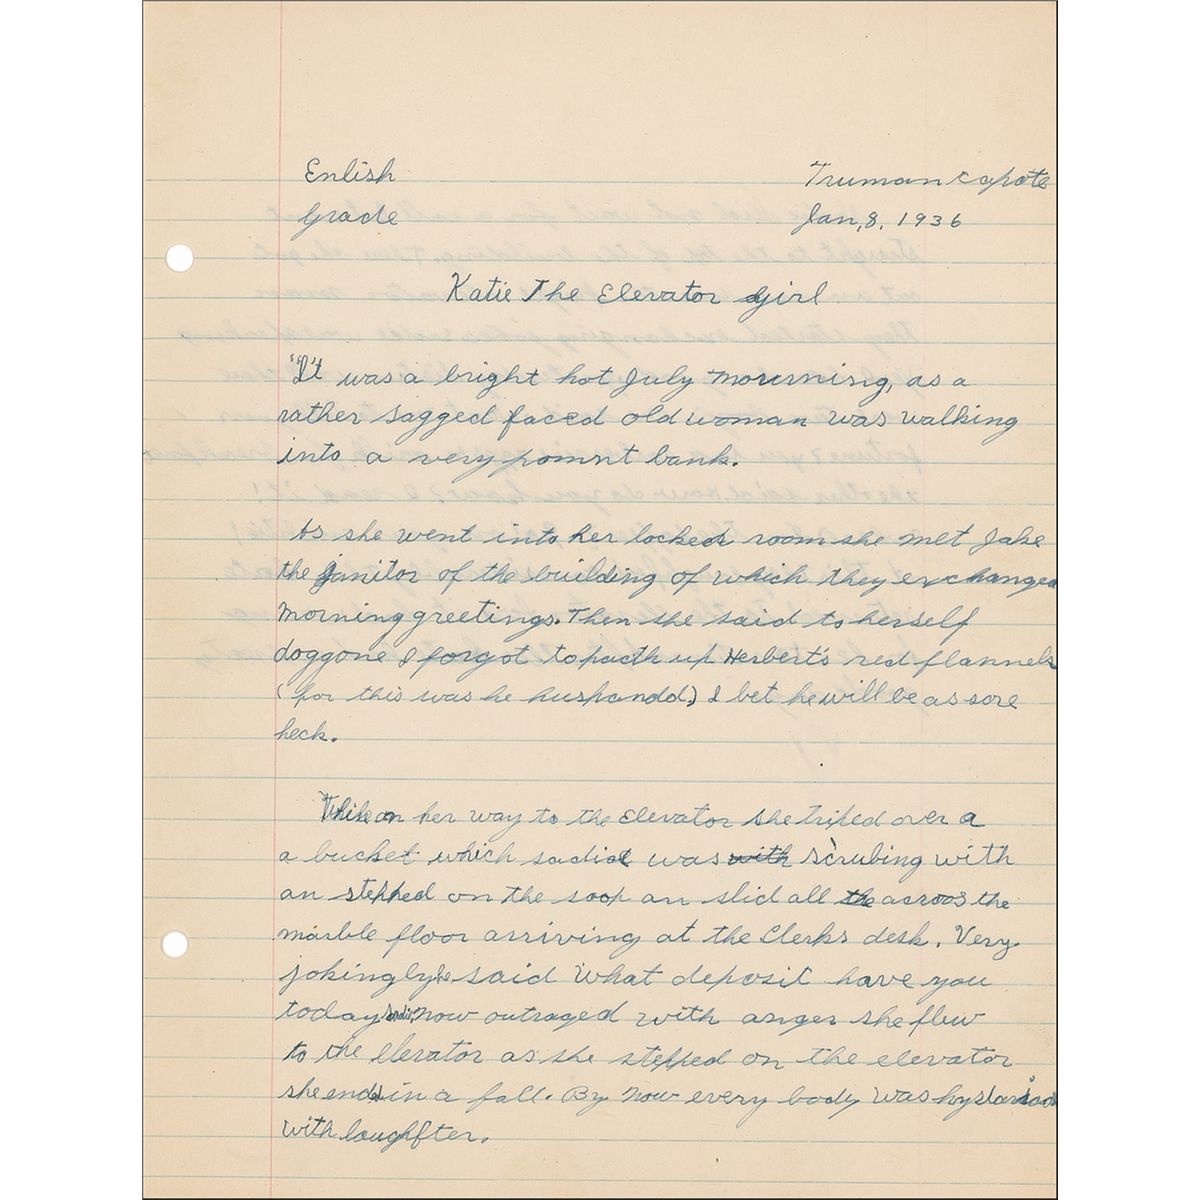 Enlish
Truman Capote
Grade
Jan, 8, 1936
Katie The Elevator Girl
"It was a bright hot July mourning, as a
rather sagged faced old woman was walking
into a very pomrnt bank.
As she went into her locked room she met Jake
the janitor of the building of which they exchanged
morning greetings. Then she said to herself
doggone I forgot to pacth up Herbert's red flannels
(for this was he husbandd.) I bet he will be as sore
heck.
While on her way to the Elevator she triped over a
a bucket which sadie was with scrubing with
an stepped on the soop an slid all the acroos the
marble floor arriving at the Clerks desk. Very
jokingly he said What deposit have you
today Sadie, now outraged with anger she flew
to the Elevator as she stepped on the elevator
she ends in a fall. By now every body was
with laughfter.